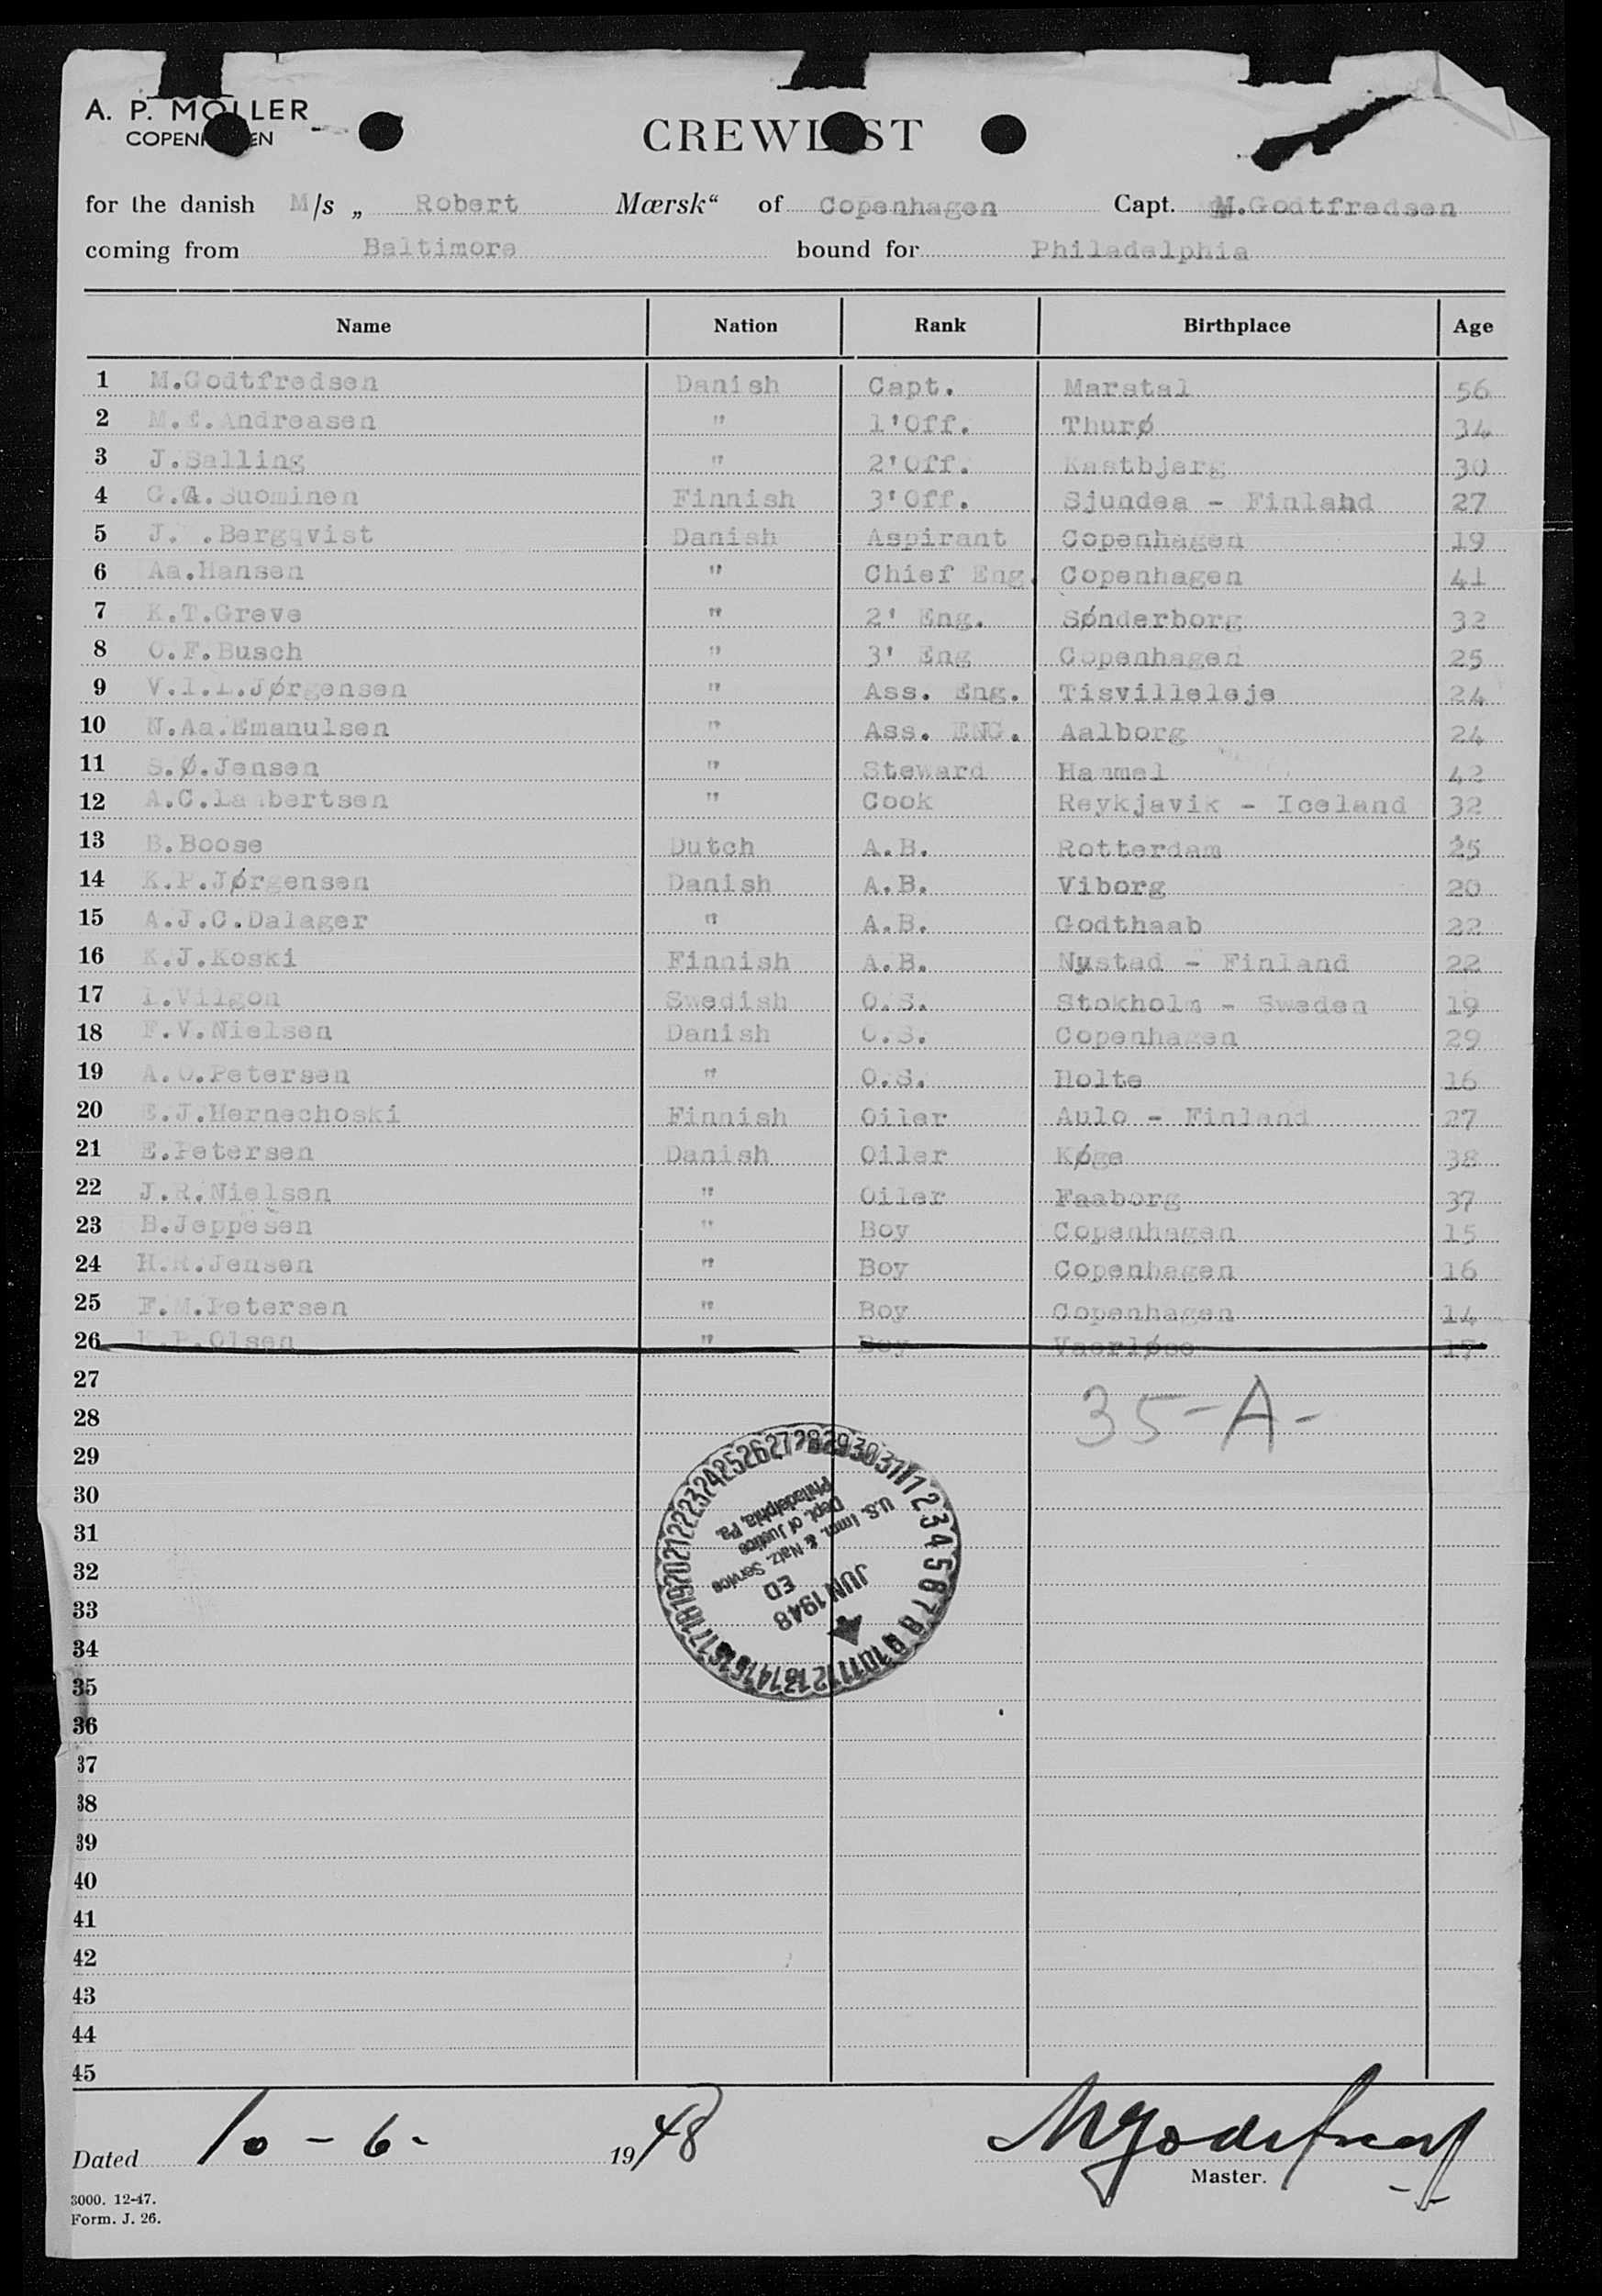 A. P. MOLLER
COPENHAGEN
CREWLIST
for the danish M/s „ Robert Mærsk“ of Copenhagen Capt. M.Godtfredsen
coming from Baltimore bound for Philadelphia
Name Nation Rank Birthplace Age
1 M.Godtfredsen Danish Capt. Marstal 56
2 M.E.Andreasen " 1'Off. Thurø 34
3 J.Salling " 2'Off. Kastbjerg 30
4 G.A.Suominen Finnish 3'Off. Sjundea - Finlahd 27
5 J. .Bergqvist Danish Aspirant Copenhagen 19
6 Aa.Hansen " Chief Eng. Copenhagen 41
7 K.T.Greve " 2' Eng. Sønderborg 32
8 O.F.Busch " 3' Eng Copenhagen 25
9 V.I.L.Jørgensen " Ass. Eng. Tisvilleleje 24
10 N.Aa.Emanulsen " Ass. ENG. Aalborg 24
11 S.Ø.Jensen " Steward Hammel 42
12 A.C.Lambertsen " Cook Reykjavik - Iceland 32
13 B.Boose Dutch A.B. Rotterdam 25
14 K.P.Jørgensen Danish A.B. Viborg 20
15 A.J.C.Dalager " A.B. Godthaab 22
16 K.J.Koski Finnish A.B. Nystad - Finland 22
17 I.Vilgon Swedish O.S. Stokholm - Sweden 19
18 F.V.Nielsen Danish O.S. Copenhagen 29
19 A.O.Petersen " O.S. Holte 16
20 E.J.Hernechoski Finnish Oiler Aulo - Finland 27
21 E.Petersen Danish Oiler Køge 38
22 J.R.Nielsen " Oiler Faaborg 37
23 B.Jeppesen " Boy Copenhagen 15
24 H.R.Jensen " Boy Copenhagen 16
25 F.M.Petersen " Boy Copenhagen 14
26 P.Olsen " Boy Vaerløse 17
27
35-A-
28
29
30
31
32
33
34
35
36
37
38
39
40
41
42
43
44
45
1 2 3 4 5 6 7 8 9 10 11 12 13 14 15 16 17 18 19 20 21 22 23 24 25 26 27 28 29 30 31
JUN 1948
ED
U.S. Imm. & Natz. Service
Dept. of Justice
Philadelphia, Pa.
Dated 10 - 6 - 1948 MGodtfredsen
Master.
3000. 12-47.
Form. J. 26.